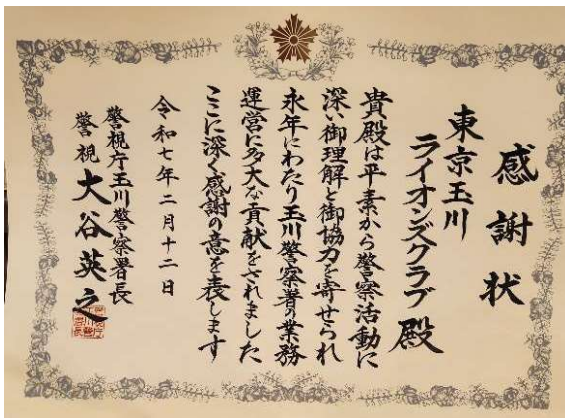 感謝状
東京玉川
ライオンズクラブ殿
貴殿は平素から警察活動に
深い御理解と御協力を寄せられ
永年にわたり玉川警察署の業務
運営に多大な貢献をされました
ここに深く感謝の意を表します
令和七年二月十二日
警視庁玉川警察署長
警視 大谷英之